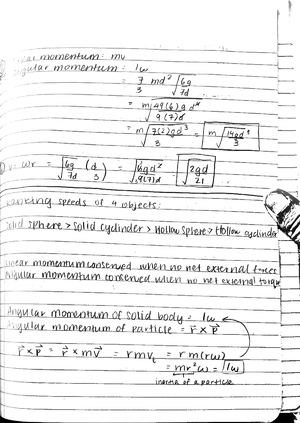 momentum: mv
angular momentum: Iω
= 7/3 md² √(6g/7d)
= m√(49(6)gd⁴/9(7)d)
= m√(7(2)gd³/3) = m√(14gd³/3)
v = ωr = √(6g/7d) (d/3) = √(6gd²/9(7)d) = √(2gd/21)
Ranking speeds of 4 objects:
Solid sphere > Solid cylinder > Hollow Sphere > Hollow cylinder
Linear momentum conserved when no net external force
Angular momentum conserved when no net external torque
Angular momentum of solid body = Iω
Angular momentum of particle = r⃗ × p⃗
r⃗ × p⃗ = r⃗ × mv⃗ = rmv = rm(rω)
= mr²ω = Iω
inertia of a particle